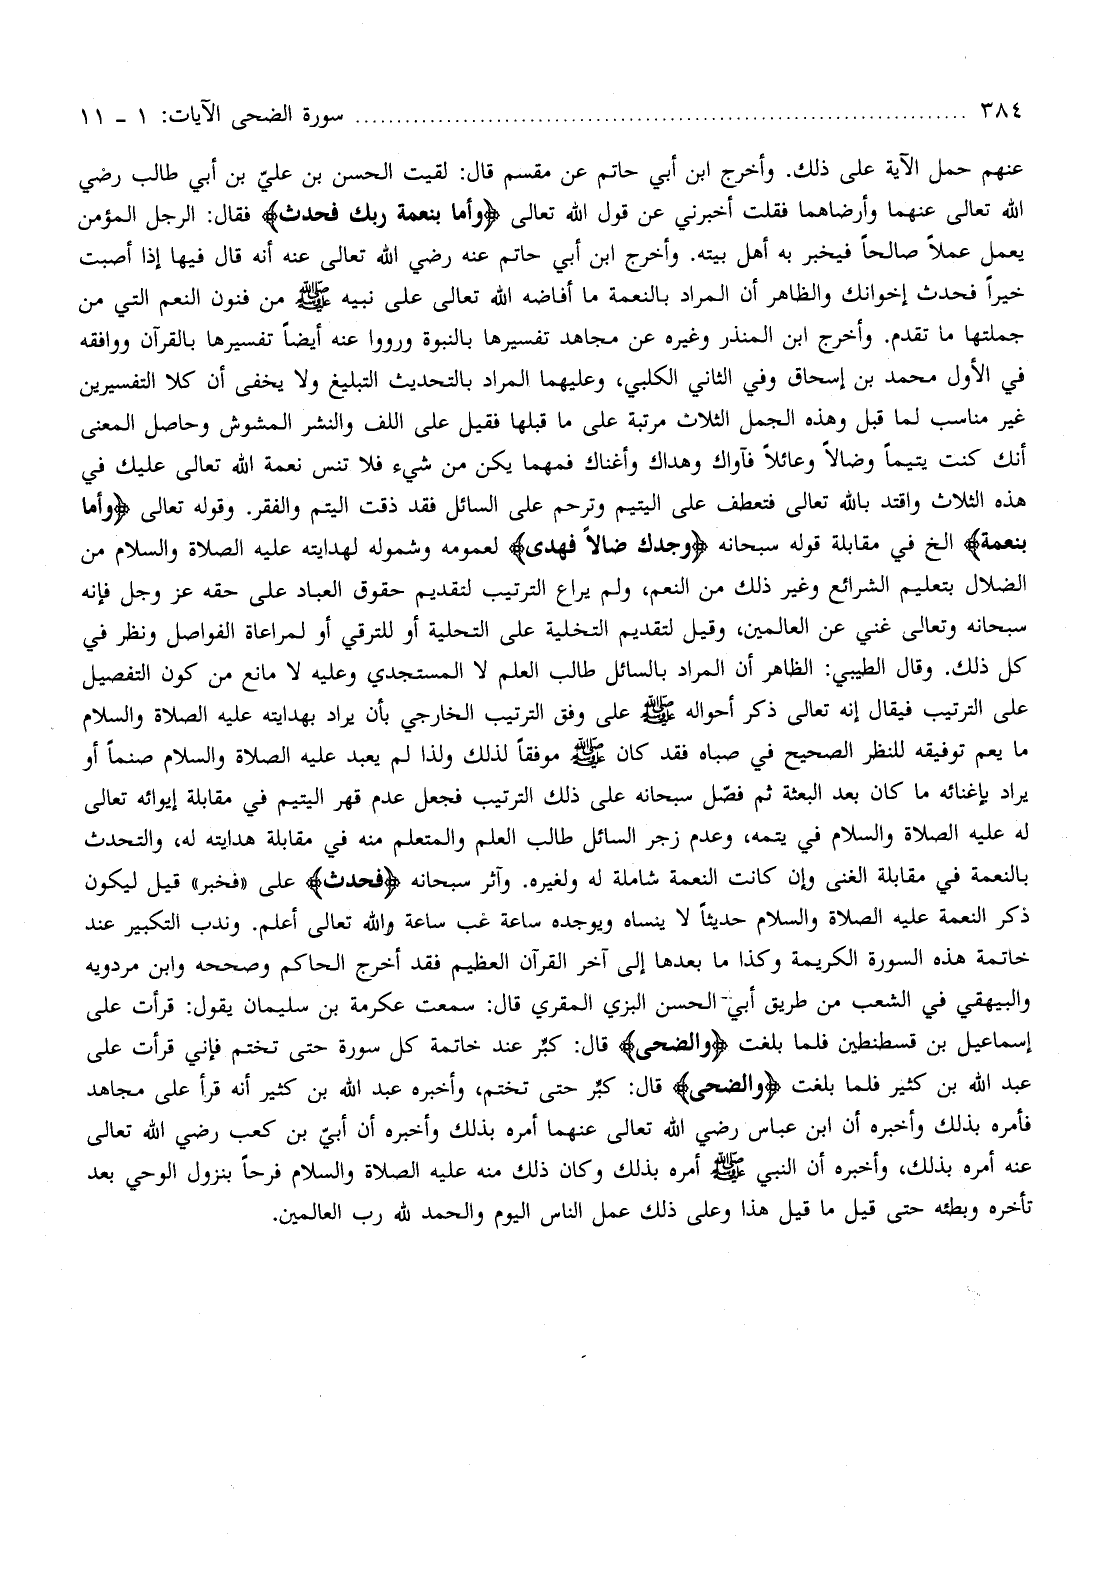 ٣٨٤ ........................................ سورة الضحى الآيات: ١ ـ ١١
عنهم حمل الآية على ذلك. وأخرج ابن أبي حاتم عن مقسم قال: لقيت الحسن بن عليّ بن أبي طالب رضي
الله تعالى عنهما وأرضاهما فقلت أخبرني عن قول الله تعالى ﴿وأما بنعمة ربك فحدث﴾ فقال: الرجل المؤمن
يعمل عملاً صالحاً فيخبر به أهل بيته. وأخرج ابن أبي حاتم عنه رضي الله تعالى عنه أنه قال فيها إذا أصبت
خيراً فحدث إخوانك والظاهر أن المراد بالنعمة ما أفاضه الله تعالى على نبيه ﷺ من فنون النعم التي من
جملتها ما تقدم. وأخرج ابن المنذر وغيره عن مجاهد تفسيرها بالنبوة ورووا عنه أيضاً تفسيرها بالقرآن ووافقه
في الأول محمد بن إسحاق وفي الثاني الكلبي، وعليهما المراد بالتحديث التبليغ ولا يخفى أن كلا التفسيرين
غير مناسب لما قبل وهذه الجمل الثلاث مرتبة على ما قبلها فقيل على اللف والنشر المشوش وحاصل المعنى
أنك كنت يتيماً وضالاً وعائلاً فآواك وهداك وأغناك فمهما يكن من شيء فلا تنس نعمة الله تعالى عليك في
هذه الثلاث واقتد بالله تعالى فتعطف على اليتيم وترحم على السائل فقد ذقت اليتم والفقر. وقوله تعالى ﴿وأما
بنعمة﴾ الخ في مقابلة قوله سبحانه ﴿وجدك ضالاً فهدى﴾ لعمومه وشموله لهدايته عليه الصلاة والسلام من
الضلال بتعليم الشرائع وغير ذلك من النعم، ولم يراع الترتيب لتقديم حقوق العباد على حقه عز وجل فإنه
سبحانه وتعالى غني عن العالمين، وقيل لتقديم التخلية على التحلية أو للترقي أو لمراعاة الفواصل ونظر في
كل ذلك. وقال الطيبي: الظاهر أن المراد بالسائل طالب العلم لا المستجدي وعليه لا مانع من كون التفصيل
على الترتيب فيقال إنه تعالى ذكر أحواله ﷺ على وفق الترتيب الخارجي بأن يراد بهدايته عليه الصلاة والسلام
ما يعم توفيقه للنظر الصحيح في صباه فقد كان ﷺ موفقاً لذلك ولذا لم يعبد عليه الصلاة والسلام صنماً أو
يراد بإغنائه ما كان بعد البعثة ثم فصّل سبحانه على ذلك الترتيب فجعل عدم قهر اليتيم في مقابلة إيوائه تعالى
له عليه الصلاة والسلام في يتمه، وعدم زجر السائل طالب العلم والمتعلم منه في مقابلة هدايته له، والتحدث
بالنعمة في مقابلة الغنى وإن كانت النعمة شاملة له ولغيره. وآثر سبحانه ﴿فحدث﴾ على «فخبر» قيل ليكون
ذكر النعمة عليه الصلاة والسلام حديثاً لا ينساه ويوجده ساعة غب ساعة والله تعالى أعلم. وندب التكبير عند
خاتمة هذه السورة الكريمة وكذا ما بعدها إلى آخر القرآن العظيم فقد أخرج الحاكم وصححه وابن مردويه
والبيهقي في الشعب من طريق أبي الحسن البزي المقري قال: سمعت عكرمة بن سليمان يقول: قرأت على
إسماعيل بن قسطنطين فلما بلغت ﴿والضحى﴾ قال: كبِّر عند خاتمة كل سورة حتى تختم فإني قرأت على
عبد الله بن كثير فلما بلغت ﴿والضحى﴾ قال: كبِّر حتى تختم، وأخبره عبد الله بن كثير أنه قرأ على مجاهد
فأمره بذلك وأخبره أن ابن عباس رضي الله تعالى عنهما أمره بذلك وأخبره أن أبيّ بن كعب رضي الله تعالى
عنه أمره بذلك، وأخبره أن النبي ﷺ أمره بذلك وكان ذلك منه عليه الصلاة والسلام فرحاً بنزول الوحي بعد
تأخره وبطئه حتى قيل ما قيل هذا وعلى ذلك عمل الناس اليوم والحمد لله رب العالمين.